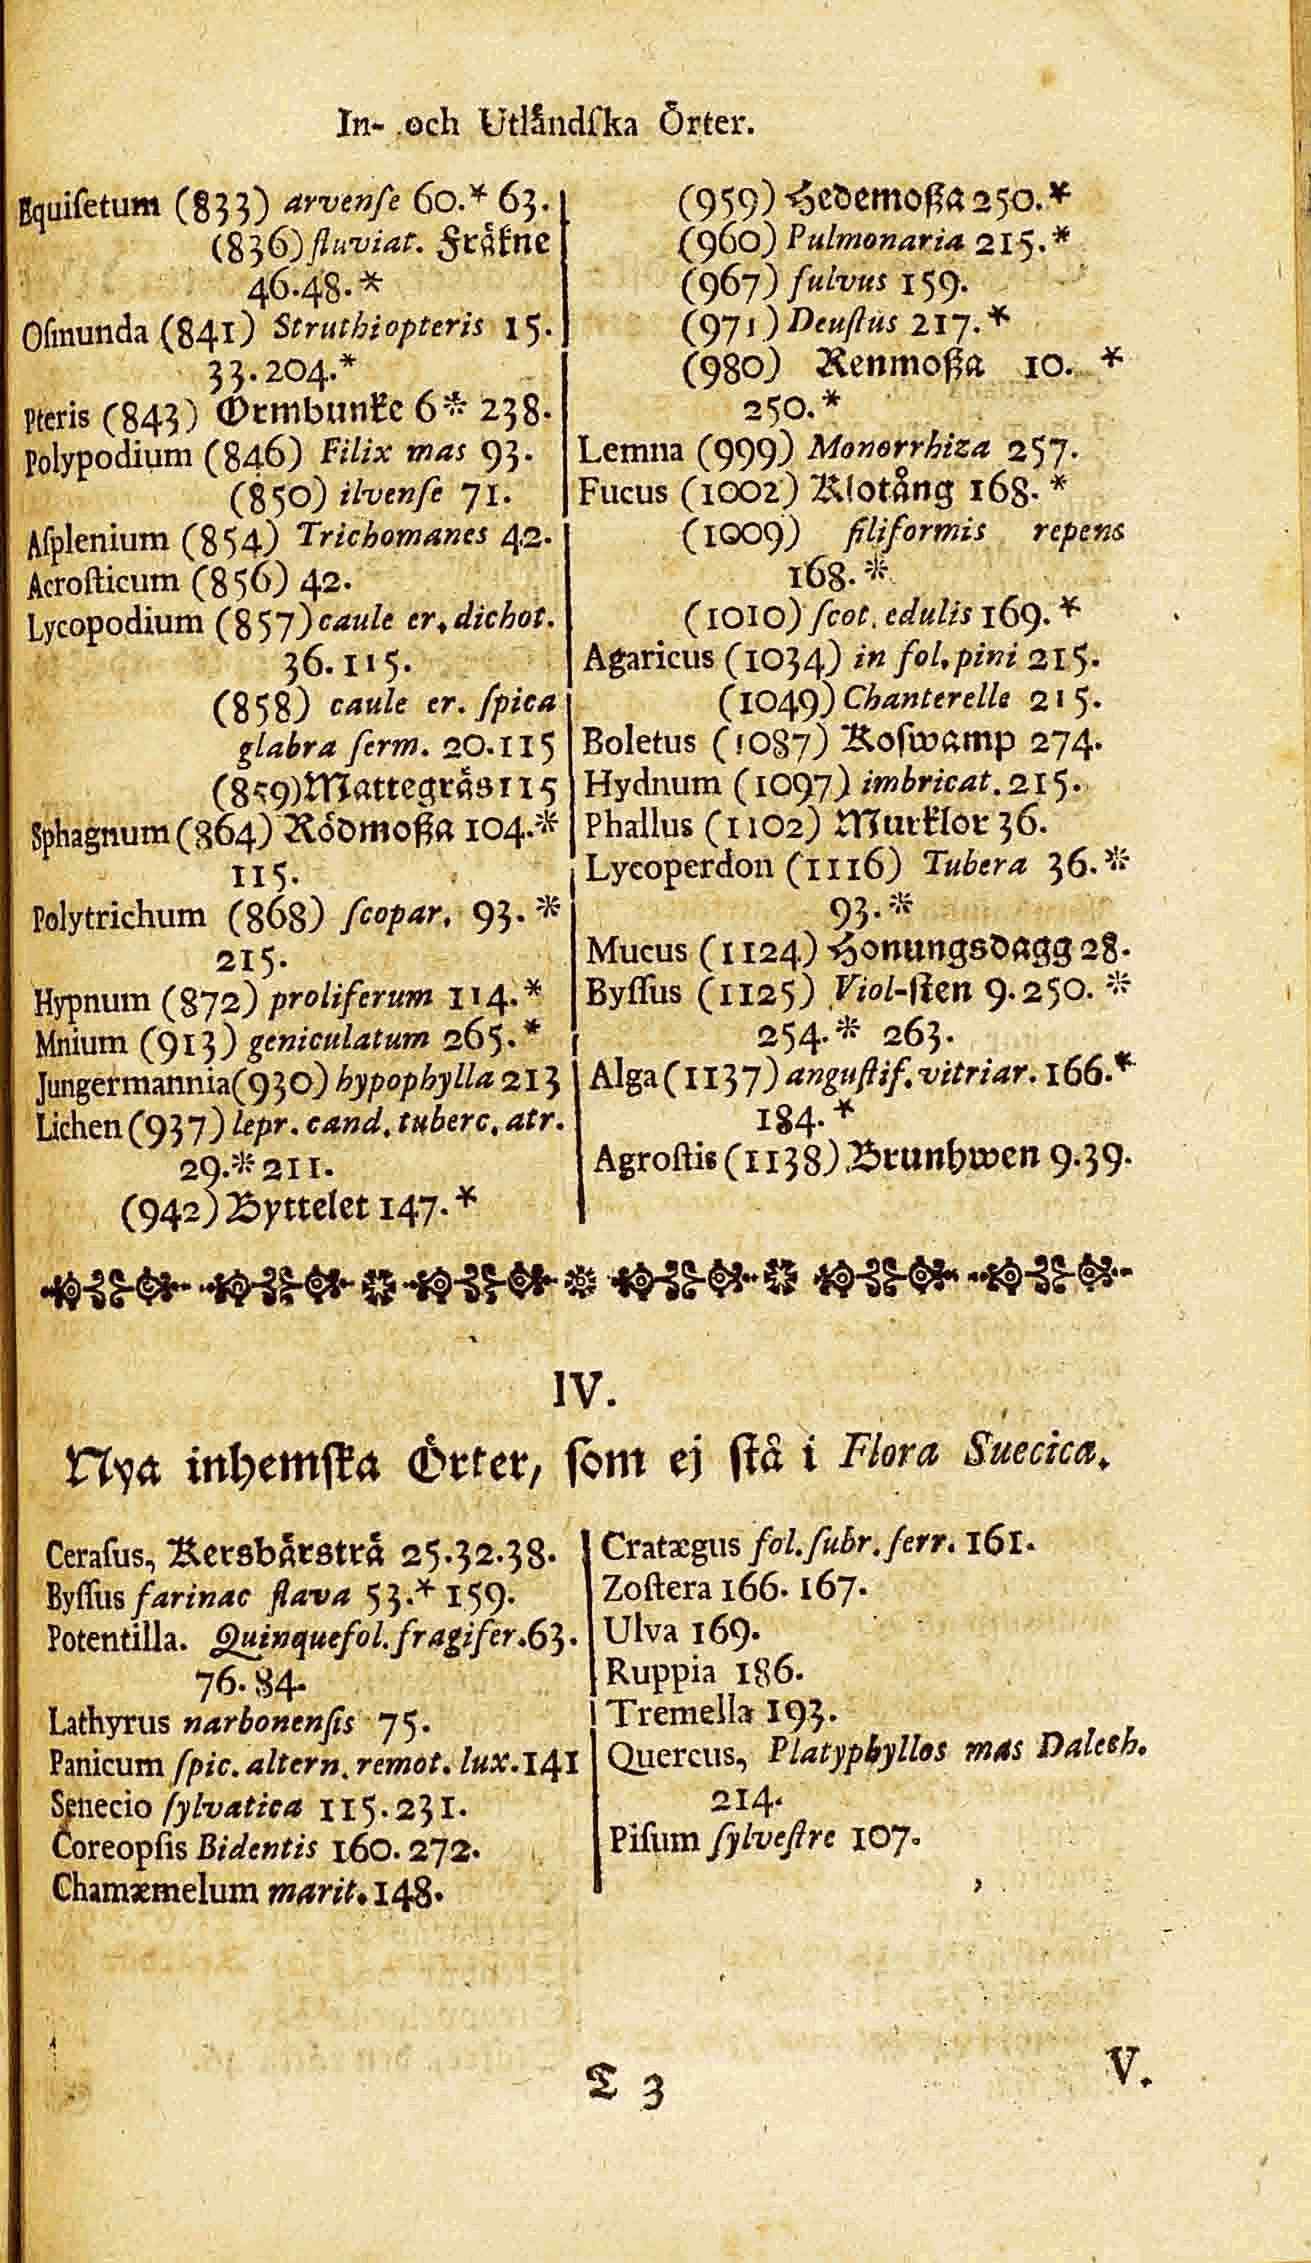 In- och Utlåndſka Örter.
Equiſetum (833) arvenſe 60.* 63.
(836) fluviat. Fräkne
46.48.*
Oſmunda (841) Struthiopteris 15.
33.204.*
Pteris (843) Ormbunke 6* 238.
Polypodium (846) Filix mas 93.
(850) ilvenſe 71.
Aſplenium (854) Trichomanes 42.
Acroſticum (856) 42.
Lycopodium (857) caule er. dichot.
36.115.
(858) caule er. ſpica
glabra ſerm. 20.115
(859) Mattegräs 115
Sphagnum (864) Rödmoßa 104.*
115.
Polytrichum (868) ſcopar. 93.*
215.
Hypnum (872) proliferum 114.*
Mnium (913) geniculatum 265.*
Jungermannia (930) hypophylla 213
Lichen (937) lepr. cand. tuberc. atr.
29.* 211.
(942) Byttelet 147.*
(959) Hedemoßa 250.*
(960) Pulmonaria 215.*
(967) fulvus 159.
(971) Deuſtus 217.*
(980) Renmoßa 10. *
250.*
Lemna (999) Monorrhiza 257.
Fucus (1002) Klotång 168.*
(1009) filiformis repens
168.*
(1010) ſcot. edulis 169.*
Agaricus (1034) in fol. pini 215.
(1049) Chanterelle 215.
Boletus (1087) Koſwamp 274.
Hydnum (1097) imbricat. 215.
Phallus (1102) Murklor 36.
Lycoperdon (1116) Tubera 36.*
93.*
Mucus (1124) Honungsdagg 28.
Byſſus (1125) Viol-ſten 9.250.*
254.* 263.
Alga (1137) anguſtif. vitriar. 166.*
184.*
Agroſtis (1138) Brunhwen 9.39.
IV.
Nya inhemſka Örter, ſom ej ſtå i Flora Suecica.
Ceraſus, Kersbårstrå 25.32.38.
Byſſus farinac flava 53.* 159.
Potentilla. Quinquefol. fragifer. 63.
76.84.
Lathyrus narbonenſis 75.
Panicum ſpic. altern. remot. lux. 141
Senecio ſylvatica 115.231.
Coreopſis Bidentis 160.272.
Chamæmelum marit. 148.
Cratægus fol. ſubr. ſerr. 161.
Zoſtera 166. 167.
Ulva 169.
Ruppia 186.
Tremella 193.
Quercus, Platyphyllos mas Dalech.
214.
Piſum ſylveſtre 107.
T 3
V.